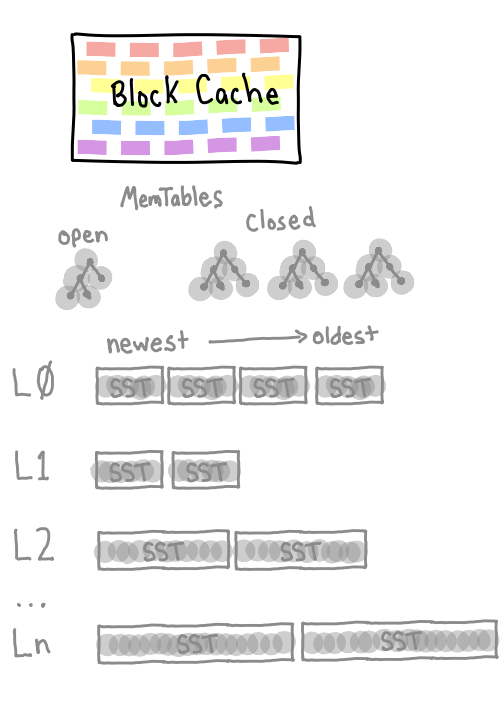 Block Cache
MemTables
open
Closed
newest → oldest
LØ SST SST SST SST
L1 SST SST
L2 SST SST
...
Ln SST SST